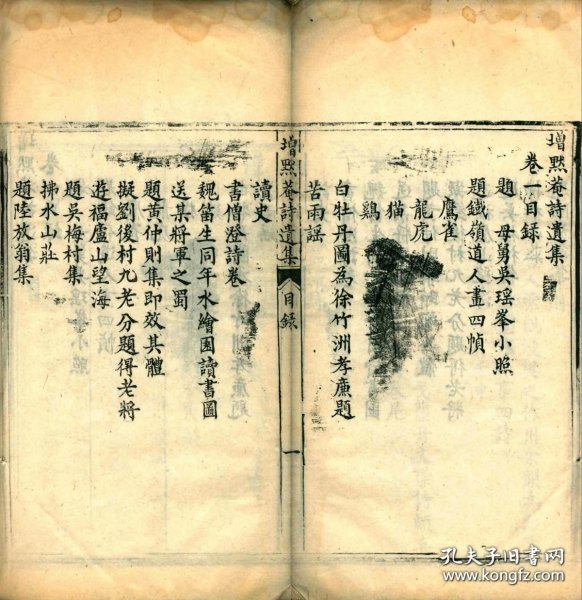 增默菴詩遺集
卷一目録
題 母舅吳瑶峯小照
題鐵嶺道人畫四幀
鷹雀
龍虎
猫
鷄
白牡丹圖為徐竹洲孝廉題
苦雨謡
增默菴詩遺集 目録 一
讀史
書憎澄詩卷
魏笛生同年水繪園讀書圖
送某將軍之蜀
題黄仲則集即效其體
擬劉後村九老分題得老將
遊福廬山望海
題吳梅村集
拂水山莊
題陸放翁集
孔夫子旧书网
www.kongfz.com